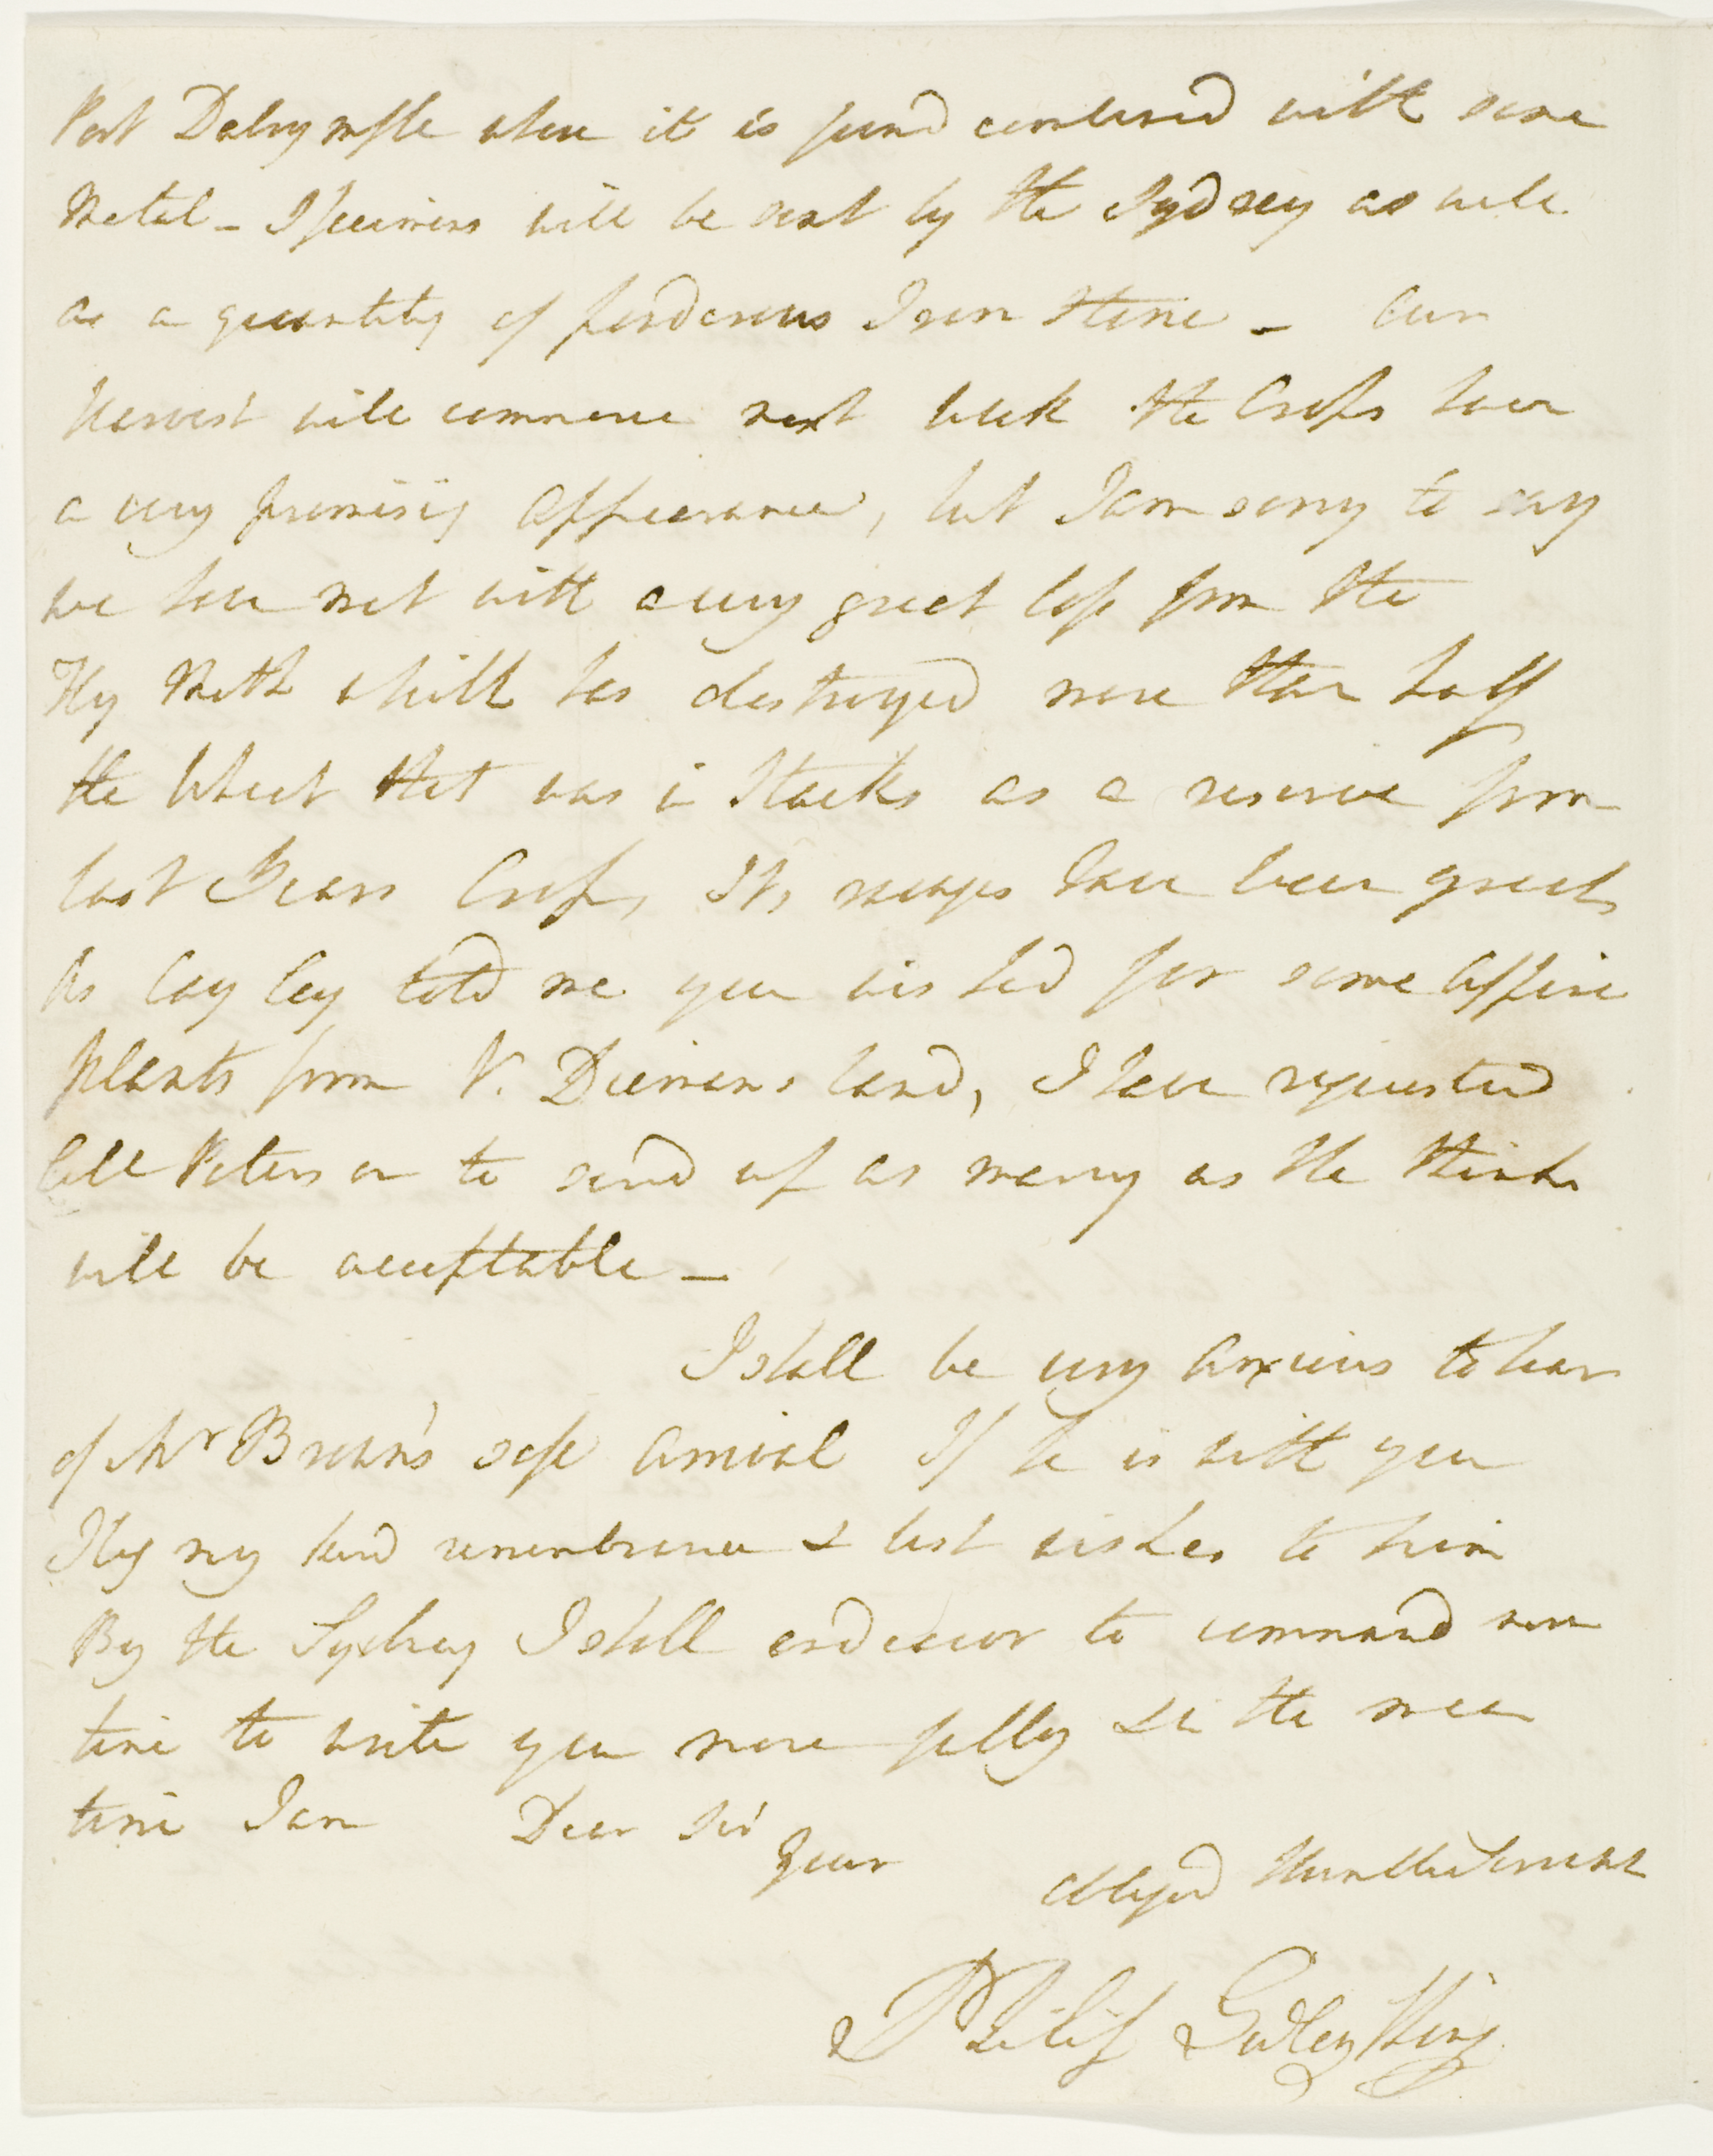 Port Dalrymple where it is found combined with some
Metal - Specimens will be sent by the Sydney as well
as a quantity of ponderous Iron Stone - Our
Harvest will commence next week the Crops have
a very promising appearance, but I am sorry to say
we have met with a very great loss from the
Fly Moth which has destroyed more than half
the Wheat that was in Stacks as a reserve from
last Years Crop, Its ravages have been great,
As Cayley told me you wished for some Alpine
plants from V. Diemans land, I have requested
Coll Paterson to send up as many as He thinks
will be acceptable -
I shall be very anxious to hear
of Mr Brown's safe arrival If he is with you
I beg my kind remembrance & best wishes to him
By the Sydney I shall endeavor to command more
time to write you more fully & in the mean
time I am Dear Sir
Your obliged Humble Servant
Philip Gidley King